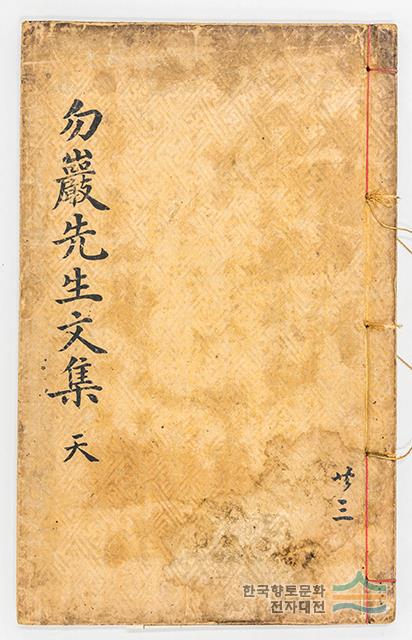 勿巖先生文集 天
共三
한국향토문화
전자대전